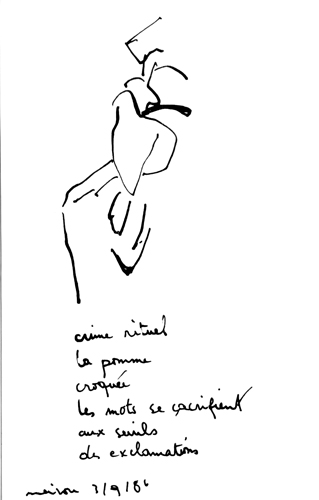 crime rituel
la pomme
croquée
les mots se sacrifient
aux seuils
des exclamations
3/9/86